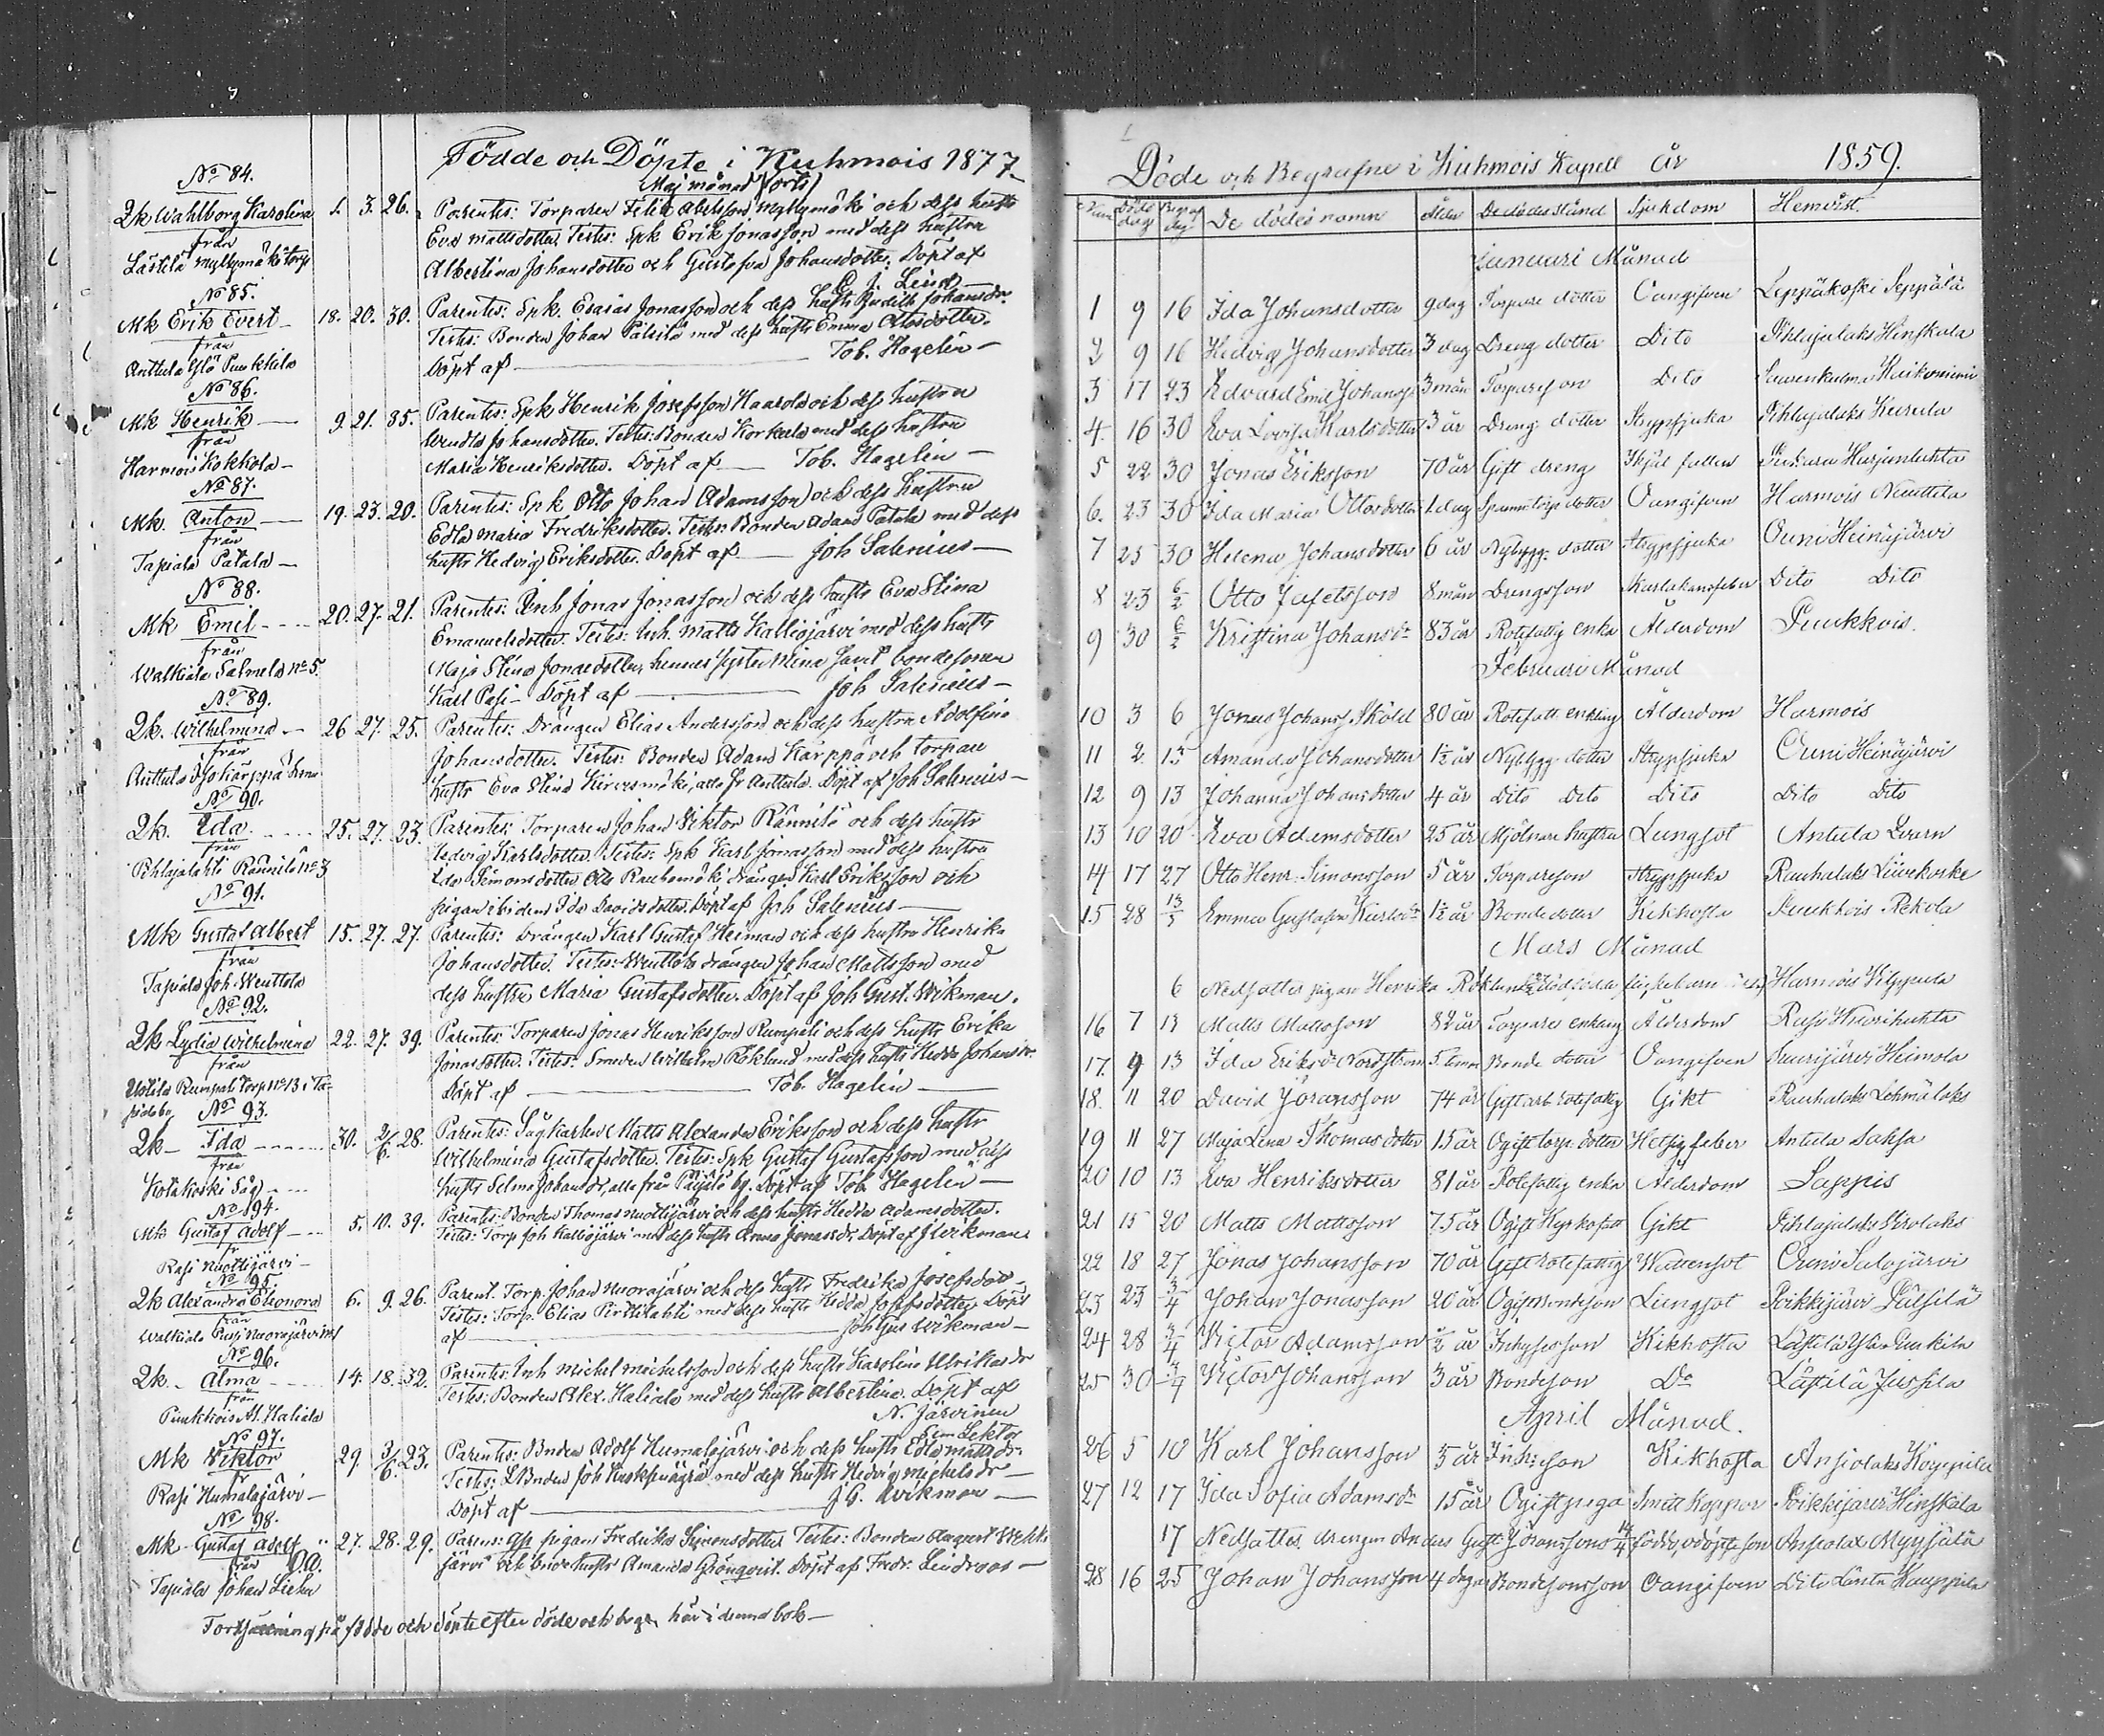 Födde och Döpte i Kuhmois 1877.
Maj månad (forts)
No 84.
Qk Wahlborg Karolina
från
Lästilä Myllymäki torp
1. 3. 26.
Parentes: Torparen Felix Abelsson Myllymäki och dess hustr
Eva Mattsdotter. Testes: Spk Erik Jonasson med dess hustru
Albertina Johansdotter och Gustafva Johansdotter. Döpt af
C. J. Lind
No 85.
Mk Erik Evert
från
Anttula Ylö Punkkila
18. 20. 30.
Parentes: Spk. Esaias Jonasson och dess hustr Judith Johansdr.
Testes: Bonden Johan Pälsilä med dess hustr Emma Ottosdotter.
Döpt af Tob. Hagelin
No 86.
Mk Henrik
från
Harmois Kokkola
9. 21. 35.
Parentes: Spk Henrik Josefsson Haarola och dess hustru
Wendla Johansdotter. Testes: Bonden Korkeela med dess hustru
Maria Henriksdotter. Döpt af Tob. Hagelin
No 87.
Mk. Anton
från
Tapiala Patala
19. 23. 20.
Parentes: Spk Otto Johan Adamsson och dess hustru
Edla Maria Fredriksdotter. Testes: Bonden Adam Patala med dess
hustr Hedvig Eriksdotter. Döpt af Joh Salenius
No 88.
Mk Emil
från
Walkiala Salmela no 5
20. 27. 21.
Parentes: Inh Jonas Jonasson och dess hustr Eva Stina
Emanuelsdotter. Testes: Inh. Matts Kalliojärvi med dess hustr
Maja Stina Jonasdotter, hennes syster Mina samt bondesonen
Karl Pasi. Döpt af Joh Salenius
No 89.
Qk. Wilhelmina
från
Anttula Isokärppä
26 27. 25.
Parentes: Drängen Elias Andersson och dess hustru Adolfina
Johansdotter. Testes: Bonden Adam Kärppä och torpare
hustr Eva Stina Kirvesmäki, alla fr Anttula. Döpt af Joh Salenius
No 90.
Qk. Ida
från
Pihlajalahti Rännilä no 3
25. 27. 23.
Parentes: Torparen Johan Viktor Rännilä och dess hustr
Hedvig Karlsdotter. Testes: Spk Karl Jonasson med dess hustru
Ida Simonsdotter Rauhamäki drängen Karl Eriksson och
pigan ibidem Ida Davidsdotter. Döpt af Joh Salenius
No 91.
Mk Gustaf Albert
från
Tapiala Joh. Wenttola
15. 27. 27.
Parentes: Drängen Karl Gustaf Heiman och dess hustru Henrika
Johansdotter. Testes: Wenttola drängen Johan Mattsson med
dess hustru Maria Gustafsdotter. Döpt af Joh Gust. Wikman.
No 92.
Qk Lydia Wilhelmina
från
Rumpali torp no 13 i Ta-
piala by
22. 27. 39.
Parentes: Torparen Jonas Henriksson Rumpali och dess hustr Erika
Jonasdotter. Testes: Smeden Wilhelm Röklund med dess hustr Hedda Johansdr.
Döpt af Tob. Hagelin
No 93.
Qk Ida
från
Kotakoski Såg
30. 2/6. 28.
Parentes: Sågkarlen Matts Alexander Eriksson och dess hustr
Wilhelmina Gustafsdotter. Testes: Spk Gustaf Gustafsson med dess
hustr Selma Johansdr, alla från Päijälä by. Döpt af Tob Hagelin
No 94.
Mk Gustaf Adolf
fr
Rasi Nuottijärvi
5. 10. 39.
Parentes: Bonden Thomas Nuottijärvi och dess hustr Hedda Adamsdotter.
Testes: Torp Joh Kalliojärvi med dess hustr Anna Jonasdr. Döpt af J Wikman
No 95.
Qk Alexandra Eleonora
från
Walkiala Pasi Nuorajärvi
6. 9. 26.
Parent. Torp. Johan Nuorajärvi och dess hustr Fredrika Josefsdot-
Testes: Torp. Elias Pirttilahti med dess hustr Hedda Josefsdotter Döpt
af Joh Gus Wikman
No 96.
Qk. Alma
från
Punkkois M. Haliala
14. 18. 32.
Parentes: Inh Michel Michelsson och dess hustr Karolina Ulrikasdr
Testes: Bonden Alex. Haliala med dess hustr Albertina. Döpt af
N. Järvinen
Em Lektor
No 97.
Mk Viktor
fr
Rasi Humalajärvi
29. 3/6. 23.
Parentes: Bnden Adolf Humalajärvi och dess hustr Edla Mattsdr.
Testes: Bnden Joh med dess hustr Hedvig Michelsdr
Döpt af J. G. Wikman
No 98.
Mk Gustaf Adolf
från
Tapiala Johan Liehu
27. 28. 29.
Parens: Ogi pigan Fredrika Simonsdotter Testes: Bonden August
järvi och hustr Amanda Grönqvist. Döpt af Fredr. Lindroos
Fortsättning på födde och döpte efter döde och begr. här i denna bok
Döde och Begrafne i Kuhmois Kapell år 1859.
Num Döds dag Begraf dag De dödes namn Ålder De dödes Stånd Sjukdom Hemvist.
Januari Månad
1 9 16 Ida Johansdotter 9 dag Torpare dotter Oangifven Leppäkoski Seppälä
2 9 16 Hedvig Johansdotter 3 dag Dreng dotter Dito Pihlajalaks Hinskala
3 17 23 Edvard Emil Johanss 3 mån Torpareson Dito
4. 16 30 Eva Lovisa Karlsdotter 3 år Dreng dotter Strypsjuka Pihlajalaks Kurula
5 22 30 Jonas Eriksson 70 år Gift dreng Ihjäl fallen Harjunlahta
6. 23 30 Ida Maria Ottosdotter 1 dag dotter Oangifven Harmois Nenttila
7 25 30 Helena Johansdotter 6 år Nybygg. dotter Strypsjuka Ouni Heinäjärvi
8 23 6/2 Otto Jafetsson 8 mån Drengson Skarlakansfeber Dito Dito
9 30 6/2 Kristina Johansdr 83 år Rotefattig enka Ålderdom Puukkois.
Februari Månad
10 3 6 Jonas Johans Sköld 80 år Rotefatt enkling Ålderdom Harmois
11 2 13 Amanda Johansdotter 1½ år Nybygg dotter Strypsjuka Ouni Heinäjärvi
12 9 13 Johanna Johansdotter 4 år Dito Dito Dito Dito Dito
13 10 20 Eva Adamsdotter 25 år Mjölnare hustru Lungsot Antula Qvarn
14 17 27 Otto Henr. Simonsson 5 år Torpareson Strypsjuka Rauhalaks Liuvekoske
15 28 13/3 Emma Gustafva Karlsdr 1½ år Bonde dotter Kikhosta Puukkois Rekola
Mars Månad
6 Nedsattes pigan Henrika Röklunds dödfödda flickebarn Harmois Wilppula
16 7 13 Matts Mattsson 82 år Torpare enkling Ålderdom Rasi Kuorihuhta
17. 9 13 Ida Eriksdr Nordström 5 timm Bonde dotter Oangifven Suurijärvi Heimola
18. 11 20 David Jöransson 74 år Gift arb rotefattig Gikt Rauhalaks Lehmälaks
19 11 27 Maja Lena Thomasdotter 15 år Ogift torp. dotter Hetsig feber Antula Saksa
20 10 13 Eva Henriksdotter 81 år Rotefattig enka Ålderdom Sappis
21 15 20 Matts Mattsson 75 år Ogift Kyrkofatt Gikt Pihlajalaks Sirolaks
22 18 27 Jonas Johansson 70 år Gift rotefattig Wattensot Ouni Salojärvi
23 23 3/4 Johan Jonasson 20 år Ogift Bondeson Lungsot Poikkijärvi Pälsilä
24 28 3/4 Victor Adamsson ½ år Inhysesson Kikhosta Lästilä Ylä Punkila
25 30 3/4 Victor Johansson 3 år Bondeson Do Lästilä Jussila
April Månad.
26 5 10 Karl Johansson 5 år Inh:son Kikhosta Ansiolaks Köyppilä
27 12 17 Ida Sofia Adamsdr 15 år Ogift piga Smitt Koppor Poikkijärvi Hinskala
17 Nedsattes drengen Anders Gust Jöranssons 14/4 födde, odöpte son Ansiolax Myysälä
28 16 25 Johan Johansson 4 dagar Bondesonsson Oangifven Dito Länta Kauppila